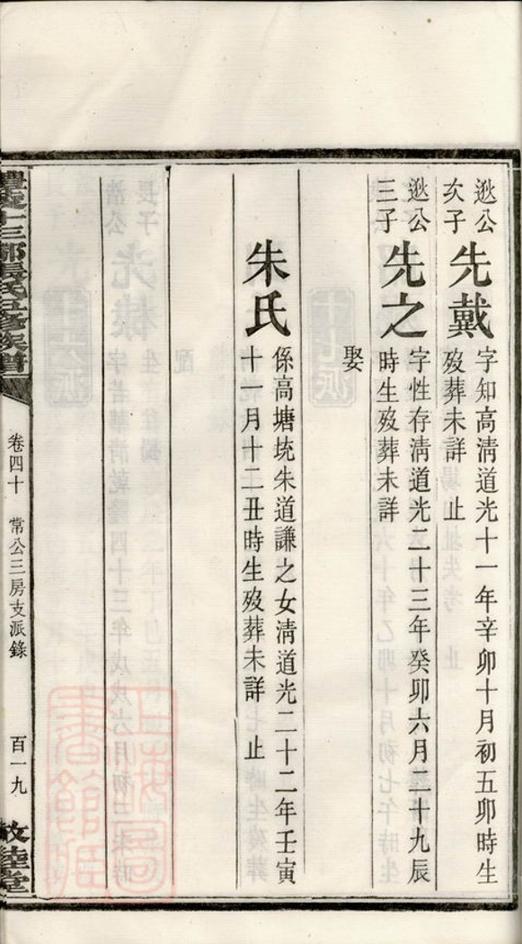 逖公
次子
先戴
字知高清道光十一年辛卯十月初五卯時生
歿葬未詳 止
逖公
三子
先之
字性存清道光二十三年癸卯六月二十九辰
時生歿葬未詳
娶
朱氏
係高塘垸朱道謙之女清道光二十二年壬寅
十一月十二丑時生歿葬未詳 止
十三都張氏五修族譜
卷四十 常公三房支派錄
百一九
敦睦堂